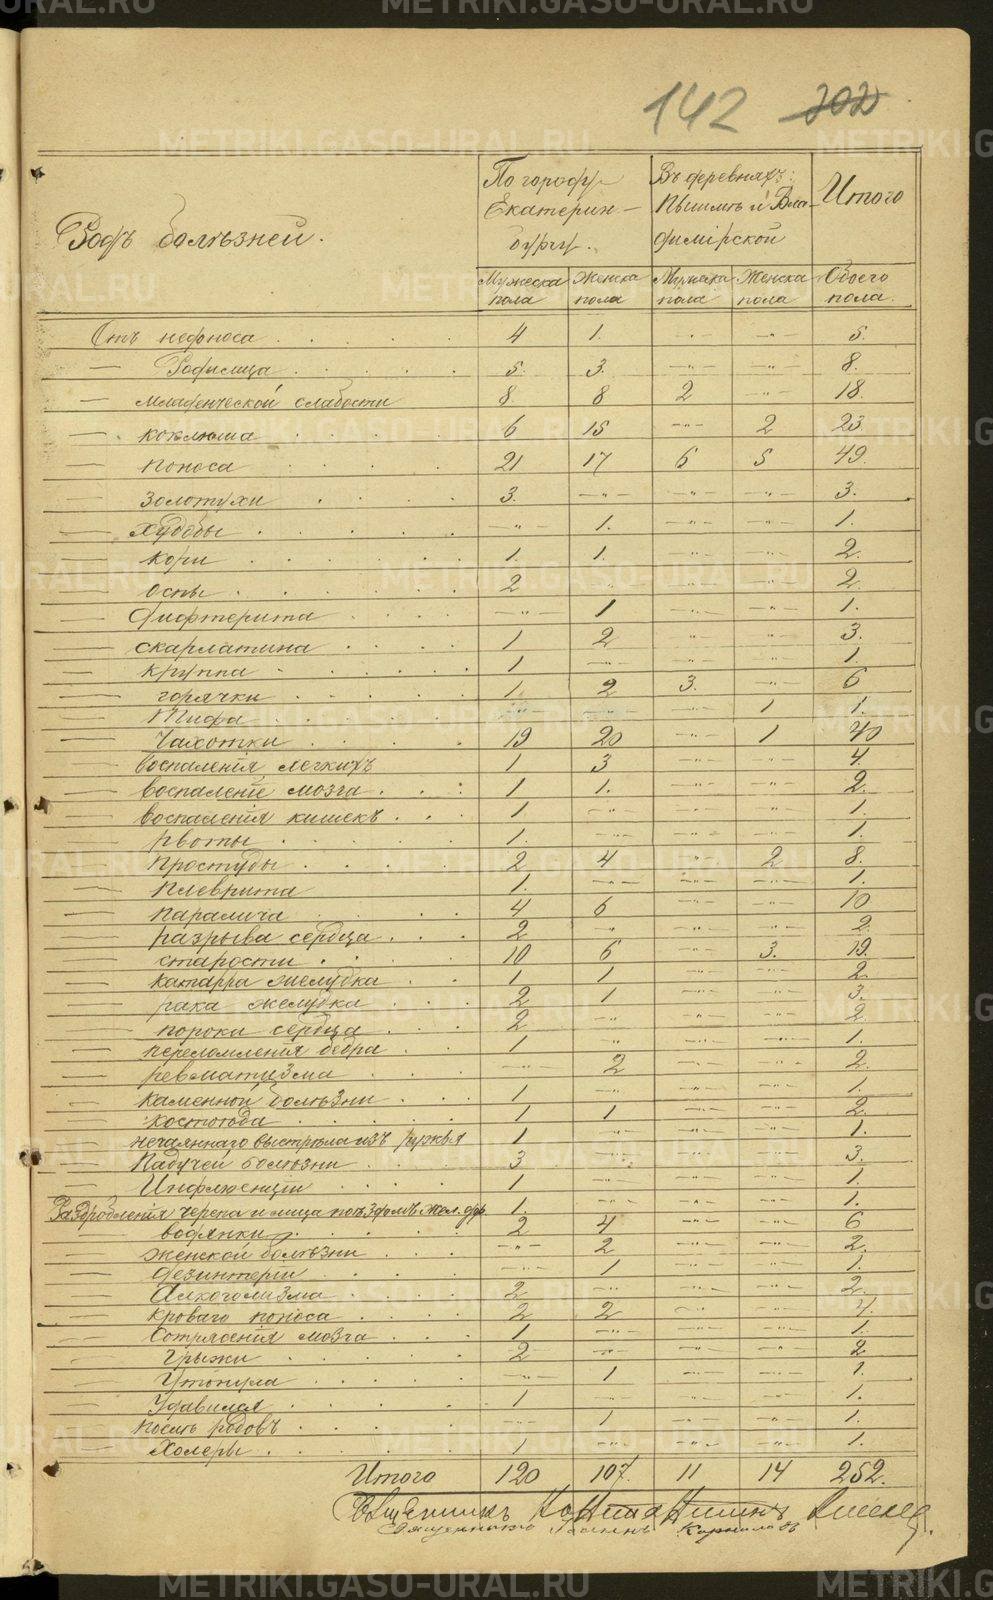 142 202
Родъ болѣзней.
По городу Екатеринбургу.
Въ деревняхъ: Пышмѣ и Владимірской
Итого
Мужеска пола Женска пола Мужеска пола Женска пола Обоего пола.
Отъ недноса 4 1. - - 5.
— Родимца 5. 3. - - 8.
— младенческой слабости 8 8 2 - 18.
— коклюша 6 15 - 2 23.
— поноса 21 17 6 5 49.
— золотухи 3. - - - 3.
— худобы - 1. - - 1.
— кори 1. 1. - - 2.
— оспы 2 - - - 2.
— дифтерита - 1 - - 1.
— скарлатина 1 2 - - 3.
— круппа 1 - - - 1.
— горячки 1 2 3. - 6
— Тифа - - - 1 1.
— Чахотки 19 20 - 1 40
— воспаленія легкихъ 1 3 - - 4.
— воспаленіе мозга 1 1. - - 2.
— воспаленія кишекъ 1 - - - 1.
— рвоты 1. - - - 1.
— простуды 2 4 - 2 8.
— плеврита 1. - - - 1.
— паралича 4 6 - - 10
— разрыва сердца 2 - - - 2.
— старости 10 6 - 3. 19.
— катарра желудка 1 1 - - 2.
— рака желудка 2 1 - - 3.
— пороки сердца 2 - - - 2.
— переломленія бедра 1 - - - 1.
— ревматизма - 2 - - 2.
— каменной болѣзни 1 - - - 1.
— костоѣда 1 1 - - 2.
— нечаяннаго выстрѣла изъ ружья 1 - - - 1.
— Падучей болѣзни 3 - - - 3.
— Инфлюенціи 1 - - - 1.
Раздробленія черепа и лица поѣздомъ жел. дор. 1. - - - 1.
— водянки 2 4 - - 6
— женской болѣзни - 2 - - 2.
— дезинтеріи - 1 - - 1.
— Алкоголизма 2 - - - 2.
— кроваго поноса 2 2 - - 4.
— Сотрясенія мозга 1 - - - 1.
— грыжи 2 - - - 2
— Утонула - 1 - - 1.
— Удавился 1 - - - 1.
— послѣ родовъ - 1 - - 1.
— Холеры 1 - - - 1.
Итого 120 107. 11 14 252.
Священникъ
Священникъ Іоаннъ Корниловъ
METRIKI.GASO-URAL.RU